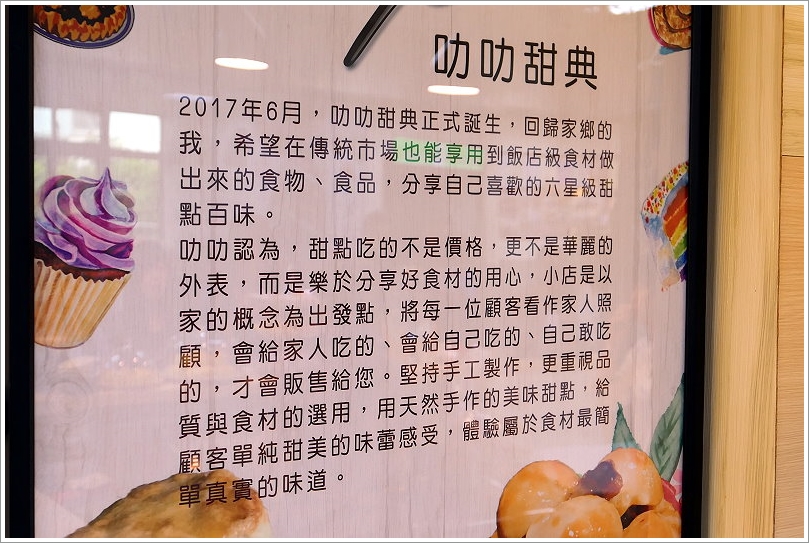 叻叻甜典
2017年6月，叻叻甜典正式誕生，回歸家鄉的
我，希望在傳統市場也能享用到飯店級食材做
出來的食物、食品，分享自己喜歡的六星級甜
點百味。
叻叻認為，甜點吃的不是價格，更不是華麗的
外表，而是樂於分享好食材的用心，小店是以
家的概念為出發點，將每一位顧客看作家人照
顧，會給家人吃的、會給自己吃的、自己敢吃
的，才會販售給您。堅持手工製作，更重視品
質與食材的選用，用天然手作的美味甜點，給
顧客單純甜美的味蕾感受，體驗屬於食材最簡
單真實的味道。